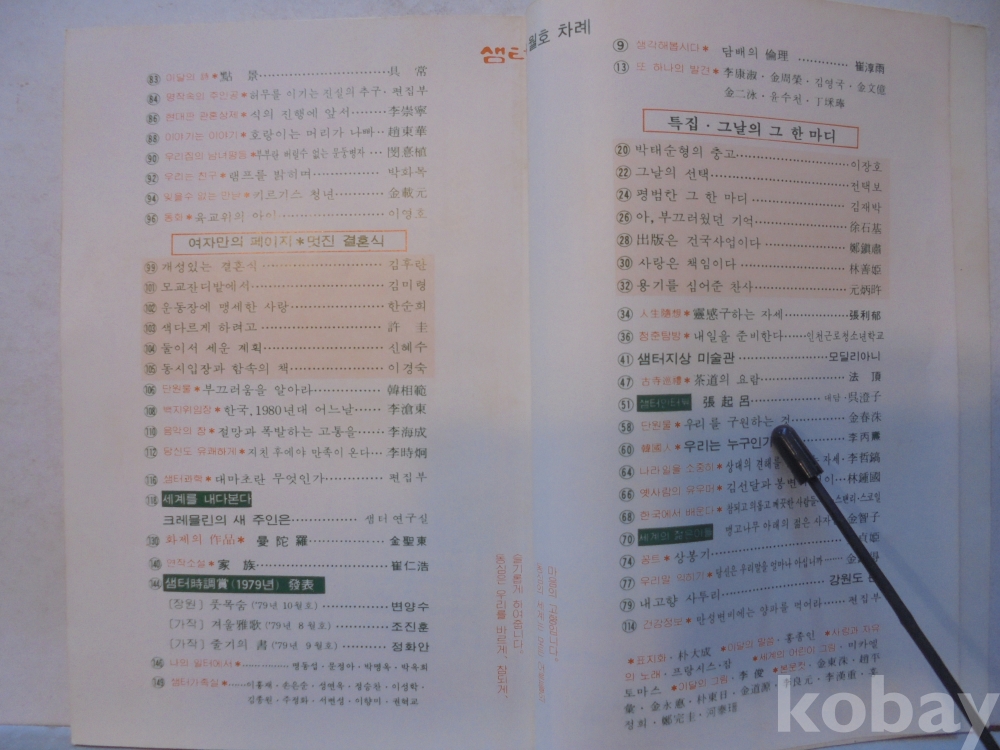 샘터 월호 차례
83 이달의 詩 * 點景 具常
84 명작속의 주인공 * 허무를 이기는 진실의 추구 · 편집부
86 현대판 관혼상제 * 식의 진행에 앞서 李崇寧
88 이야기는 이야기 * 호랑이는 머리가 나빠 趙東華
90 우리집의 남녀평등 * 부부란 버릴수 없는 운동정자 閔憙植
92 우리는 친구 * 램프를 밝히며 박화목
94 잊을수 없는 만남 * 키르기스 청년 金載元
96 동화 * 육교위의 아이 이영호
여자만의 페이지 * 멋진 결혼식
99 개성있는 결혼식 김후란
101 모교잔디밭에서 김미령
102 운동장에 맹세한 사랑 한순희
103 색다르게 하려고 許圭
104 둘이서 세운 계획 신혜수
105 동시입장과 함속의 책 이경숙
106 단원물 * 부끄러움을 알아라 韓相範
108 백지위임장 * 한국, 1980년대 어느날 李滄東
110 음악의 창 * 절망과 폭발하는 고통을 李海成
112 당신도 유쾌하게 * 지친 후에야 만족이 온다 李時炯
116 샘터과학 * 대마초란 무엇인가 편집부
118 세계를 내다본다
크레믈린의 새 주인은 샘터 연구실
130 화제의 作品 * 曼陀羅 金聖東
140 연작소설 * 家族 崔仁浩
144 샘터時調賞 (1979년) 發表
〔장원〕 풋목숨 ('79년 10월호) 변양수
〔가작〕 겨울雅歌 ('79년 8월호) 조진훈
〔가작〕 줄기의 書 ('79년 9월호) 정화안
146 나의 일터에서 * 맹동섭 · 문정아 · 박명욱 · 박옥희
149 샘터가족실 * 이흥재 · 손은순 · 성연옥 · 정승찬 · 이성학 ·
김종원 · 주정화 · 서현성 · 이향미 · 권혁교
9 생각해봅시다 * 담배의 倫理 崔淳雨
13 또 하나의 발간 * 李康淑 · 金周榮 · 김영국 · 金文億
金二泳 · 윤수천 · 丁埰琫
특집 · 그날의 그 한 마디
20 박태순형의 충고 이장호
22 그날의 선택 전택보
24 평범한 그 한 마디 김재박
26 아, 부끄러웠던 기억 徐石基
28 出版은 전국사업이다 鄭鎭肅
30 사랑은 책임이다 林善姬
32 용기를 심어준 찬사 元炳旿
34 人生隨想 * 靈感하는 자세 張利郁
36 청춘탐방 * 내일을 준비한다 인천근로청소년학교
41 샘터지상 미술관 모딜리아니
47 古寺巡禮 * 茶道의 요람 法頂
51 張起呂 대담 · 吳澄子
58 단원물 * 우리를 구원하는 것 金春洙
60 韓國人 * 우리는 누구인가 李丙燾
64 나라일을 소중히 * 상대의 견해를 는 자세 · 李哲鎬
66 옛사람의 유우머 * 김선달과 봉변 이 林鍾國
68 한국에서 배운다 * 스텐리 · 스로일
70 세계의 젊은이들 앵고나무 아래의 젊은 사자 金智子
74 꽁트 * 상봉기
77 우리말 익히기 * 당신은 우리말을 얼마나 아십니까
79 내고향 사투리 강원도
114 건강정보 * 만성변비에는 양파를 먹어라 편집부
* 표지화 · 朴大成 * 이달의 말씀 · 홍종인 * 사람과 자유
의 노래 · 프랑시스 · 잠 * 세계의 어린이 그림 · 미카엘
토마스 * 이달의 그림 · 李俊 * 본문컷 · 金東洙 · 趙平
彙 · 金永悳 · 朴東日 · 金道源 · 李良元 · 李漢重
정희 · 鄭完圭
마음의 고향입니다.
슬기롭게 하여줍니다.
동심은 우리를 바르게, 참되게,
kobay